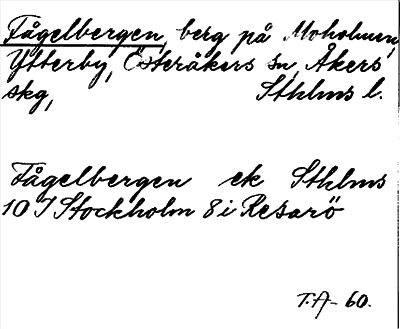 Fågelbergen, berg på Moholmen,
Ytterby, Österåkers sn, Åkers
skg, Sthlms l.
Fågelbergen ek Sthlms
10 I Stockholm 8 i Resarö
T.A- 60.